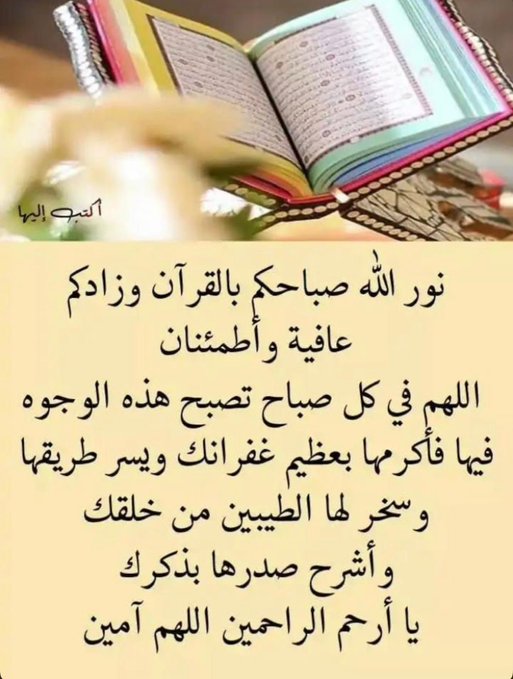 أكتب إليها
نور الله صباحكم بالقرآن وزادكم
عافية وأطمئنان
اللهم في كل صباح تصبح هذه الوجوه
فيها فأكرمها بعظيم غفرانك ويسر طريقها
وسخر لها الطيبين من خلقك
وأشرح صدرها بذكرك
يا أرحم الراحمين اللهم آمين